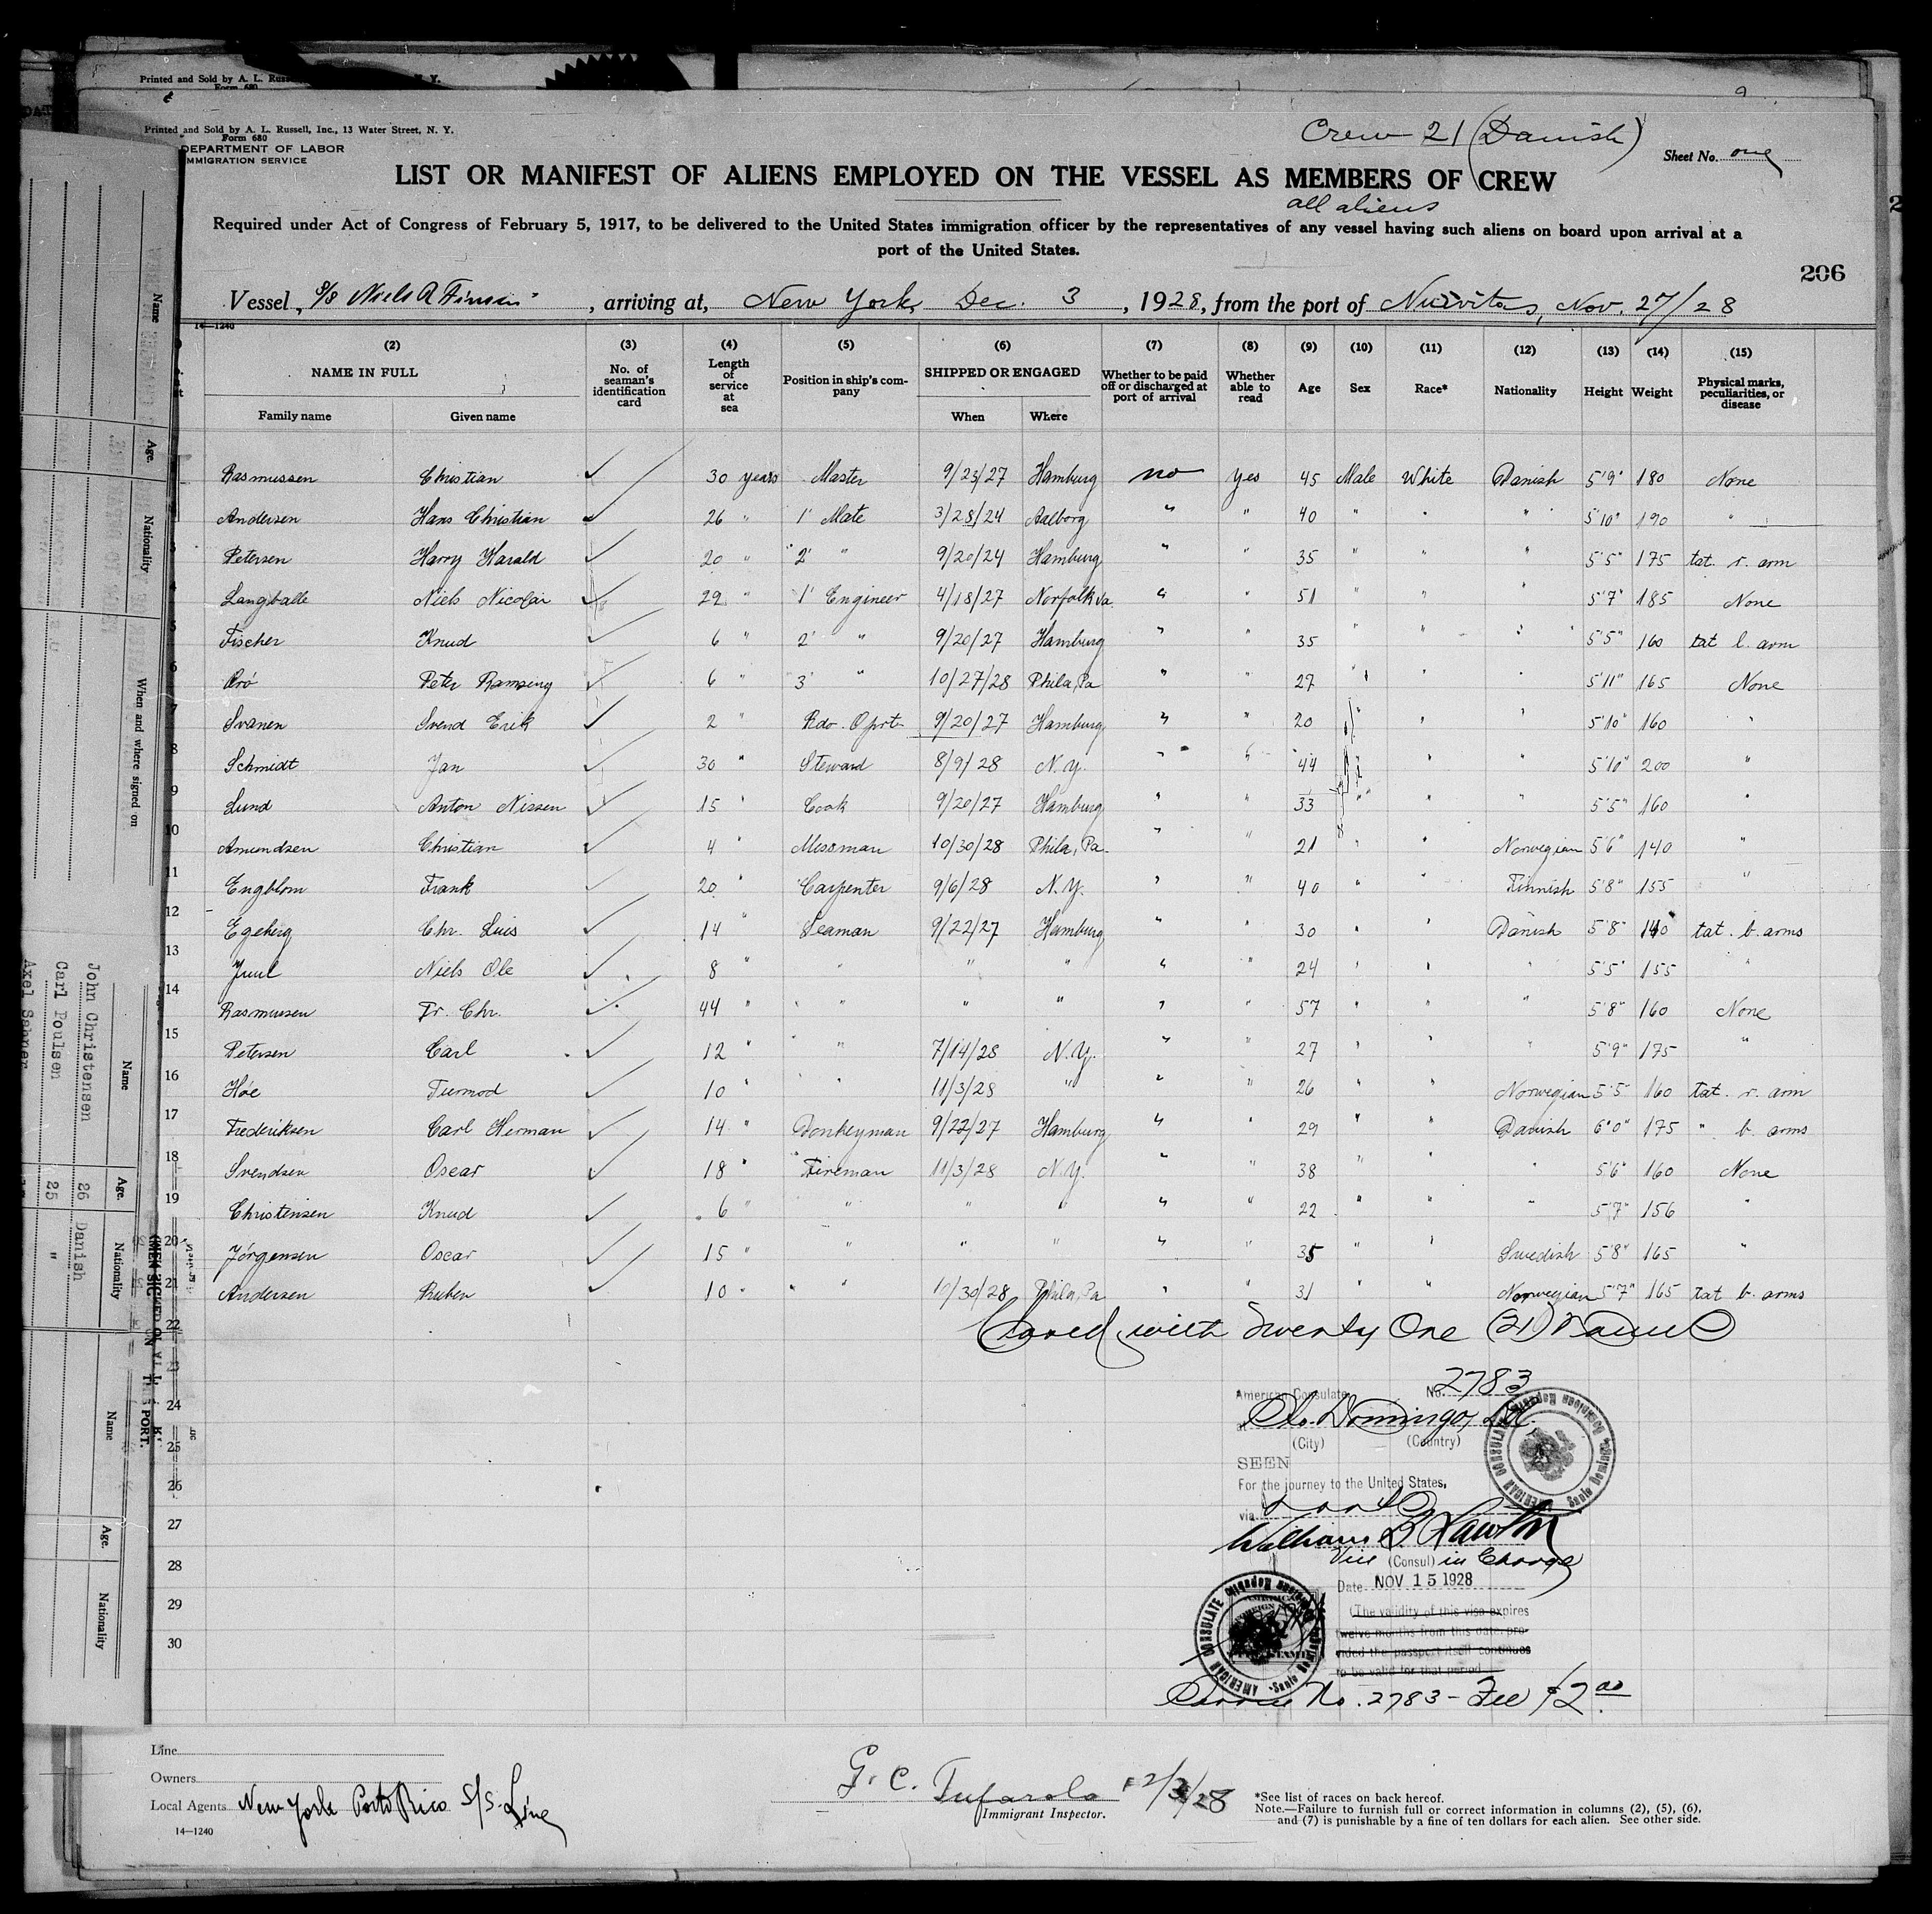 Printed and Sold by A. L. Russ
N. Y.
Form 680
Printed and Sold by A. L. Russell, Inc., 13 Water Street, N. Y.
Form 680
DEPARTMENT OF LABOR
MMIGRATION SERVICE
Crew 21 (Danish)
Sheet No. one
LIST OR MANIFEST OF ALIENS EMPLOYED ON THE VESSEL AS MEMBERS OF CREW
all aliens
Required under Act of Congress of February 5, 1917, to be delivered to the United States immigration officer by the representatives of any vessel having such aliens on board upon arrival at a
port of the United States.
206
Vessel, S/S Niels R Finsen, arriving at, New York, Dec. 3, 1928, from the port of Nuevitas, Nov. 27/28
14—1240
(2) (3) (4) (5) (6) (7) (8) (9) (10) (11) (12) (13) (14) (15)
NAME IN FULL No. of seaman's identification card Length of service at sea Position in ship's company SHIPPED OR ENGAGED Whether to be paid off or discharged at port of arrival Whether able to read Age Sex Race* Nationality Height Weight Physical marks, peculiarities, or disease
Family name Given name When Where
Rasmussen Christian ✓ 30 years Master 9/23/27 Hamburg no yes 45 Male White Danish 5'9" 180 None
Andersen Hans Christian ✓ 26 " 1' Mate 3/28/24 Aalborg " " 40 " " " 5'10" 190 "
3 Petersen Harry Harald ✓ 20 " 2' " 9/20/24 Hamburg " " 35 " " " 5'5" 175 tat. r. arm
4 Langballe Niels Nicolai ✓ 29 " 1' Engineer 4/18/27 Norfolk Va. " " 51 " " " 5'7" 185 None
5 Fischer Knud ✓ 6 " 2' " 9/20/27 Hamburg " " 35 " " " 5'5" 160 tat l. arm
6 Peter Ramseng ✓ 6 " 3' " 10/27/28 Phila, Pa " " 27 " " " 5'11" 165 None
7 Svanen Svend Erik ✓ 2 " Rdo. Oprt. 9/20/27 Hamburg " " 20 " " " 5'10" 160 "
8 Schmidt Jan ✓ 30 " Steward 8/9/28 N.Y. " " 44 " " " 5'10" 200 "
9 Lund Anton Nissen ✓ 15 " Cook 9/20/27 Hamburg " " 33 " " " 5'5" 160 "
10 Amundsen Christian ✓ 4 " Messman 10/30/28 Phila, Pa. " " 21 " " Norwegian 5'6" 140 "
11 Engblom Frank ✓ 20 " Carpenter 9/6/28 N.Y. " " 40 " " Finnish 5'8" 155 "
12 Egeberg Chr. Luis ✓ 14 " Seaman 9/22/27 Hamburg " " 30 " " Danish 5'8" 140 tat. b. arms
13 Juul Niels Ole ✓ 8 " " " " " " 24 " " " 5'5" 155 "
14 Rasmussen Fr. Chr. ✓ 44 " " " " " " 57 " " " 5'8" 160 None
15 Petersen Carl ✓ 12 " " 7/14/28 N.Y. " " 27 " " " 5'9" 175 "
16 Hóe Tormod ✓ 10 " " 11/3/28 " " " 26 " " Norwegian 5'5 160 tat. r. arm
17 Frederiksen Carl Herman ✓ 14 " Donkeyman 9/22/27 Hamburg " " 29 " " Danish 6'0" 175 " b. arms
18 Svendsen Oscar ✓ 18 " Fireman 11/3/28 N.Y. " " 38 " " " 5'6" 160 None
19 Christensen Knud ✓ 6 " " " " " " 22 " " " 5'7" 156 "
20 Jörgensen Oscar ✓ 15 " " " " " " 35 " " Swedish 5'8" 165 "
21 Andersen Ruben ✓ 10 " " 10/30/28 Phila, Pa " " 31 " " Norwegian 5'7" 165 tat b. arms
22 Closed with Twenty One (21) Names
23
24
25
26
27
28
29
30
American Consulate No. 2783
at Sto. Domingo, D.R.
(City) (Country)
SEEN
For the journey to the United States,
via
William B. Lawton
Vice (Consul) in Charge
Date NOV 15 1928
(The validity of this visa expires
twelve months from this date, pro-
vided the passport itself continues
to be valid for that period
Service No. 2783 - Fee $2.00
AMERICAN CONSULATE Santo Domingo, Dominican Republic
AMERICAN CONSULATE Santo Domingo, Dominican Republic
Line
Owners
Local Agents New York Porto Rico S/S. Line
14—1240
G. C. Tufarolo 12/3/28
Immigrant Inspector.
*See list of races on back hereof.
Note.—Failure to furnish full or correct information in columns (2), (5), (6),
and (7) is punishable by a fine of ten dollars for each alien. See other side.
Name
Age.
Nationality
When and where signed on
Name
Age.
Nationality
John Christensen 26 Danish
Carl Poulsen 25 "
Name
Age.
Nationality
PORT.